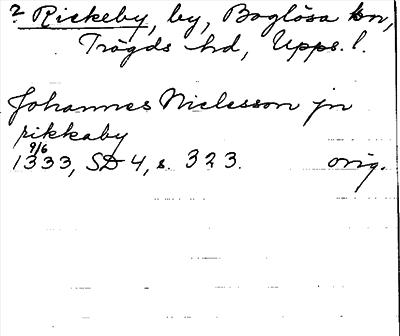 ? Rickeby, by, Boglösa sn,
Trögds hd, Upps. l.
Johannes Niclesson jn
rikkaby
9/6
1333, SD 4, s. 323. orig.